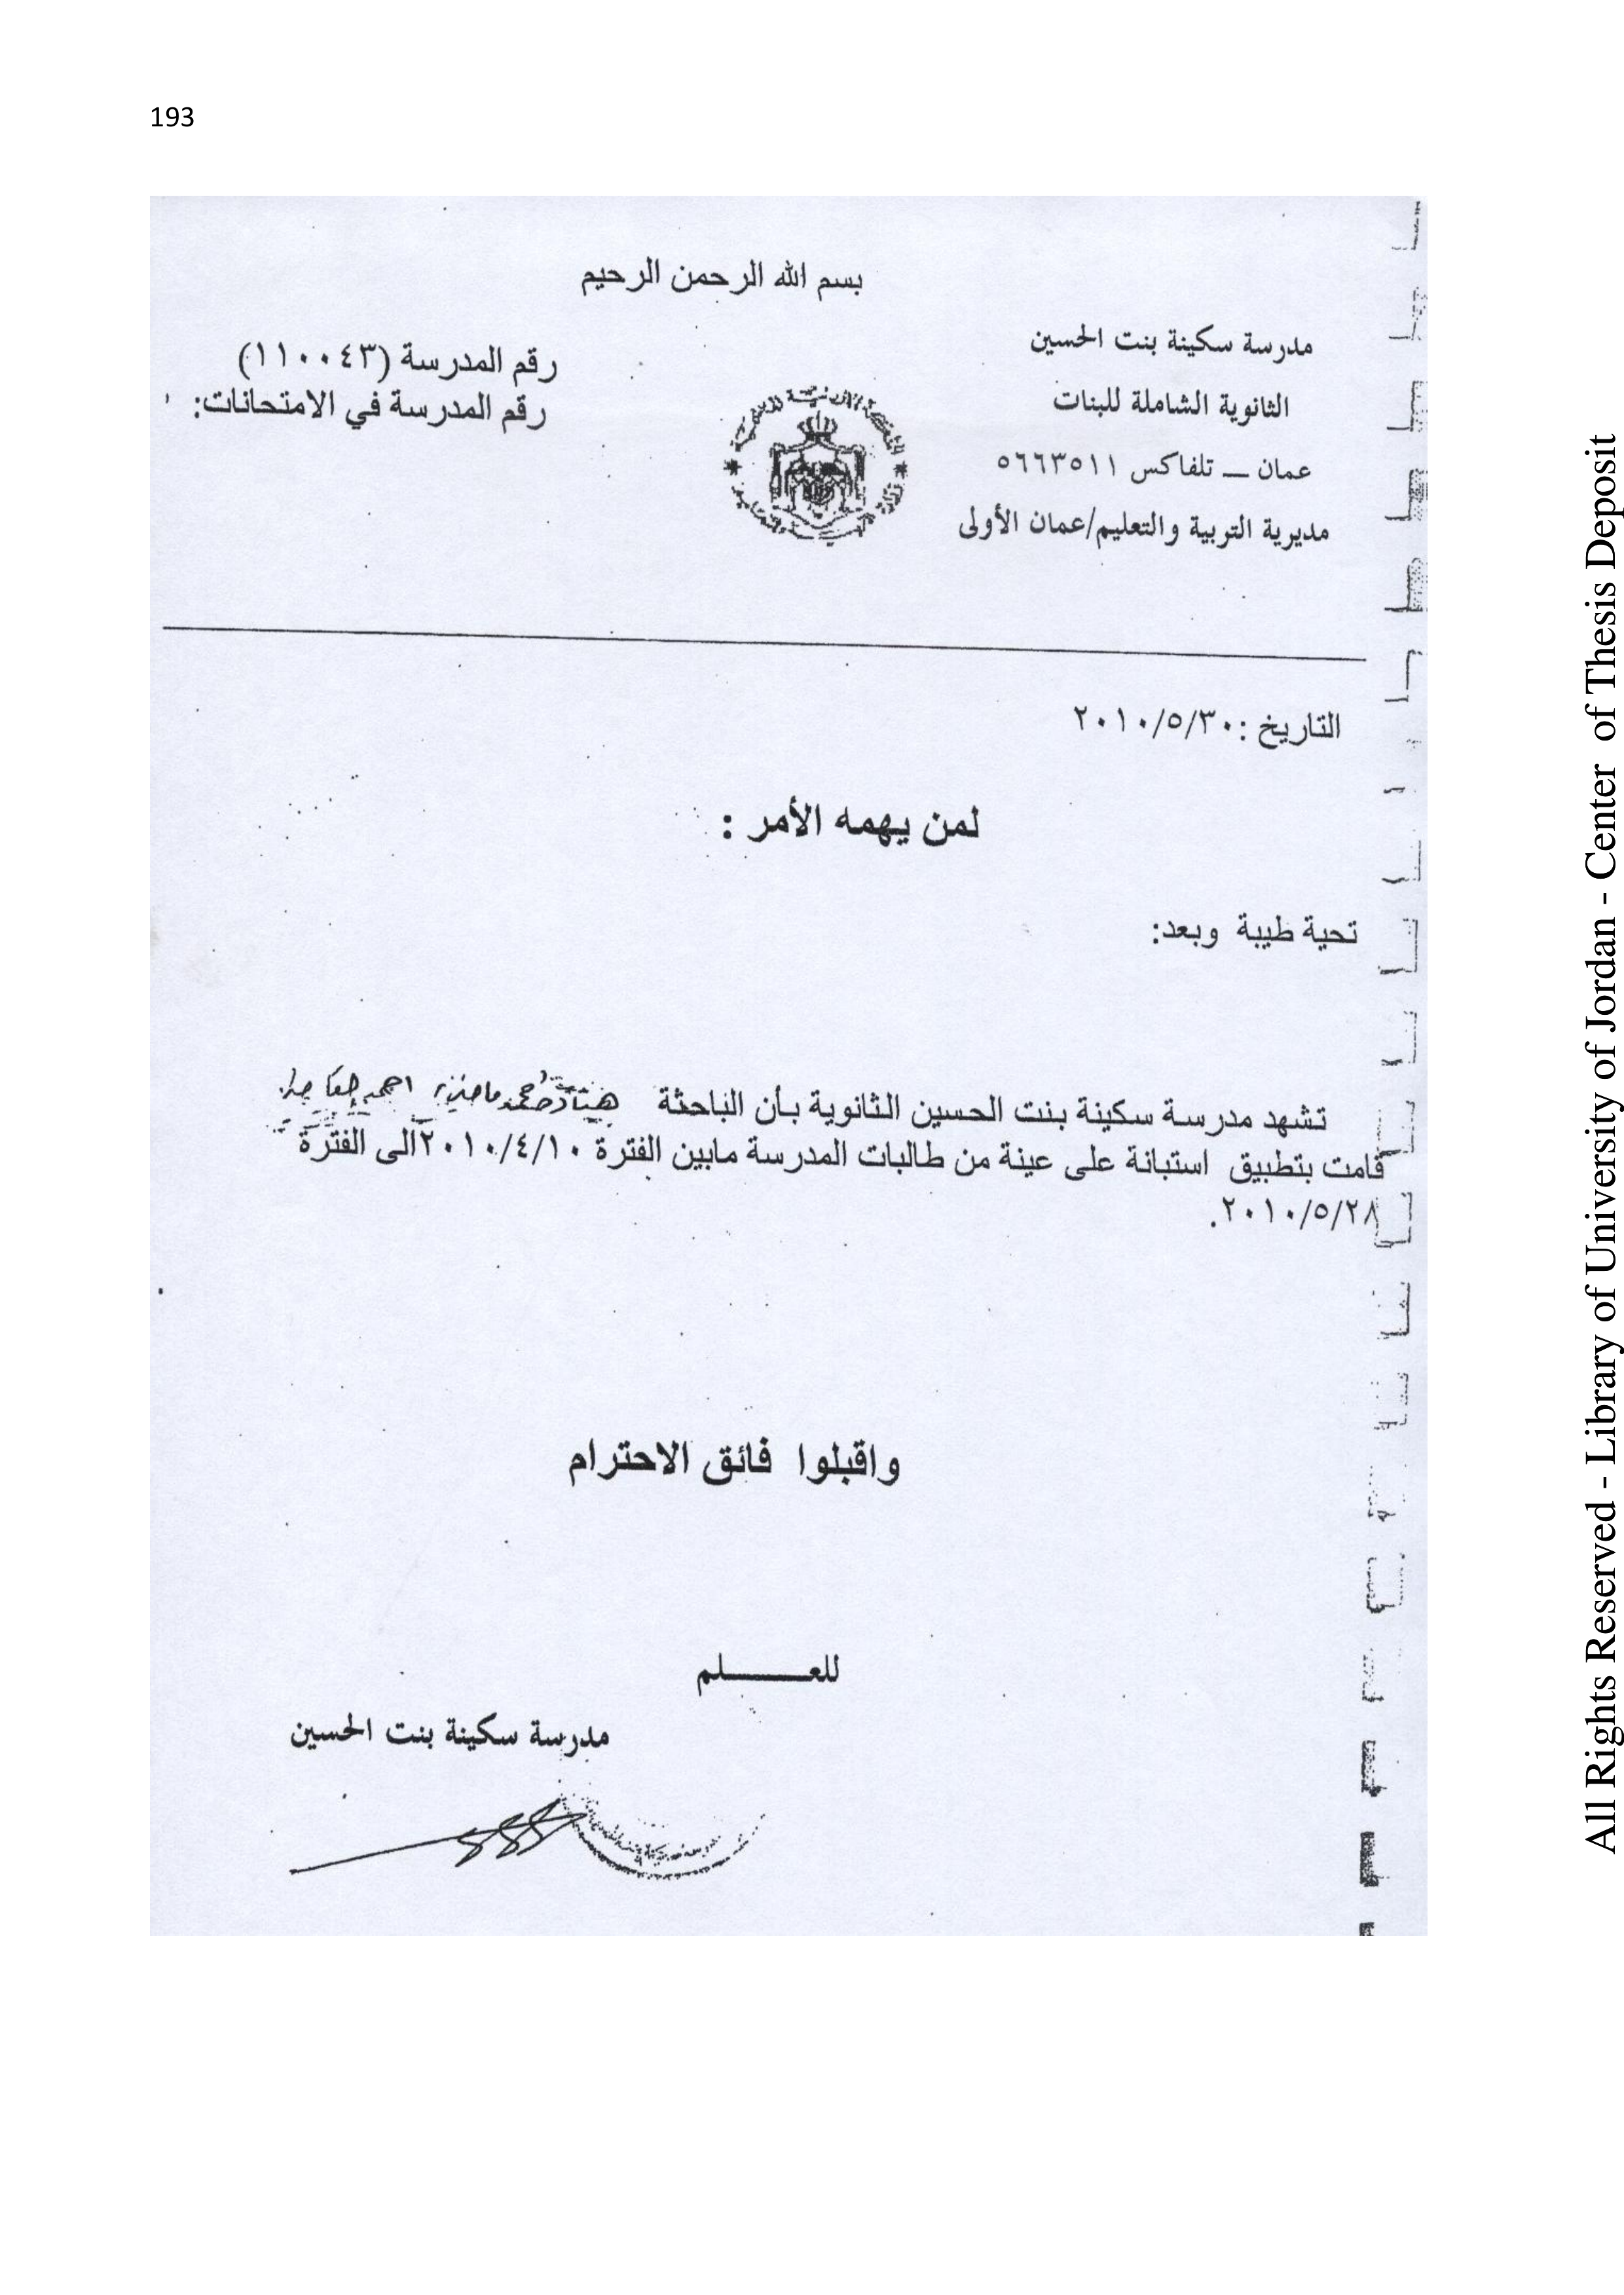 193
بسم الله الرحمن الرحيم
مدرسة سكينة بنت الحسين
الثانوية الشاملة للبنات
عمان — تلفاكس ٥٦٦٣٥١١
مديرية التربية والتعليم/عمان الأولى
رقم المدرسة (١١٠٠٤٣)
رقم المدرسة في الامتحانات:
التاريخ :٢٠١٠/٥/٣٠
لمن يهمه الأمر :
تحية طيبة وبعد:
تشهد مدرسة سكينة بنت الحسين الثانوية بأن الباحثة
قامت بتطبيق استبانة على عينة من طالبات المدرسة مابين الفترة ٢٠١٠/٤/١٠الى الفترة
٢٠١٠/٥/٢٨.
واقبلوا فائق الاحترام
للعـــــلم
مدرسة سكينة بنت الحسين
All Rights Reserved - Library of University of Jordan - Center of Thesis Deposit